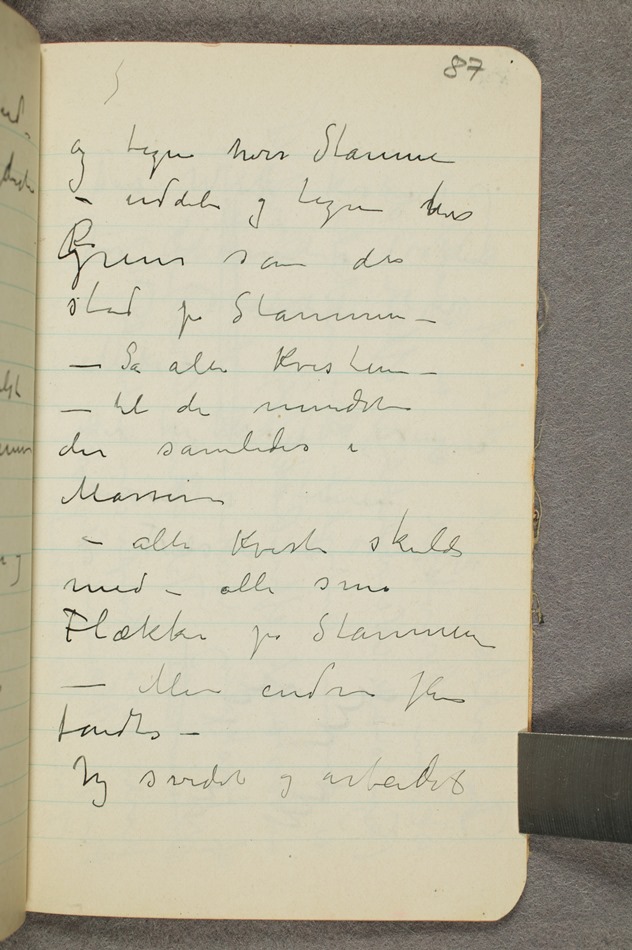 87
og tegne hver Stamme
– inddele og tegne hver
Green som den
stod på Stammen –
— Så alle Kvistene –
— til de mindste
der samledes i
Massen
– alle Kviste skulde
med – alle små
Flækker på Stammen
— Men endnu flere
fandtes –
Jeg svedet og arbeidet